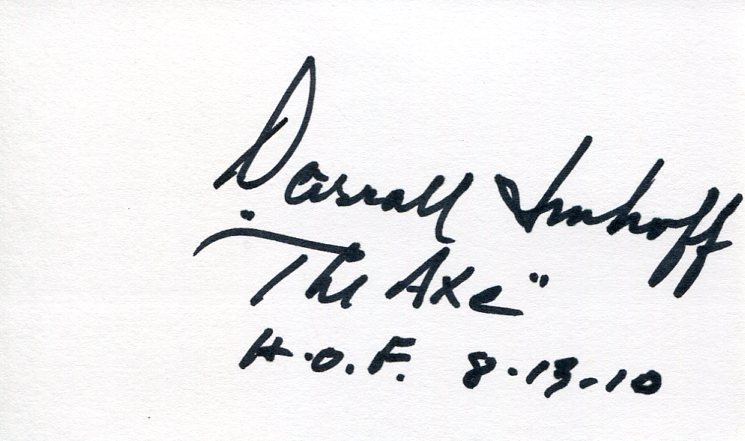 Darrall Imhoff
"The Axe"
H.O.F. 8-13-10